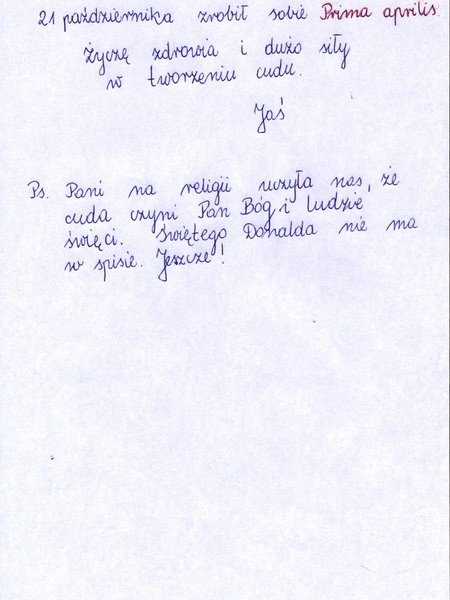 21 października zrobił sobie Prima aprilis.
Życzę zdrowia i dużo siły
w tworzeniu cudu.
Jaś
Ps. Pani na religii uczyła nas, że
cuda czyni Pan Bóg i ludzie
święci. Świętego Donalda nie ma
w spisie. Jeszcze!